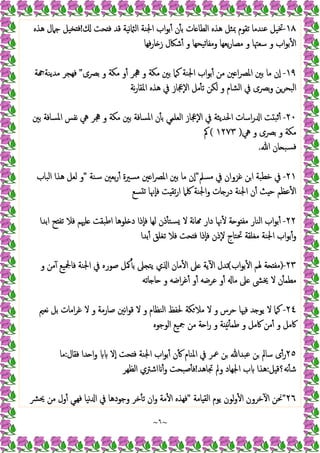 ١٨-تخيل عندما تقوم بمثل هذه الطاعات بأن أبواب الجنة الثمانية قد فتحت لك!فتخيل جمال هذه
الأبواب و سعتها و مصاريعها ومفاتيحها و أشكال زخارفها
١٩-إن ما بين المصراعين من أبواب الجنة كما بين مكة و هجر أو مكة و بصرى" فهجر مدينة
البحرين وبصرى في الشام و لكن تأمل الإعجاز في هذه المقارنة
٢٠-أثبتت الدراسات الحديثة في الإعجاز العلمي بأن المسافة بين مكة و هجر هي نفس المسافة بين
مكة و بصرى و هي( ١٢٧٣ )كم
فسبحان الله.
٢١-في خطبة ابن غزوان في مسلم"إن ما بين المصراعين مسيرة أربعين سنة "و لعل هذا الباب
الأعظم حيث أن الجنة درجات والجنة كلما ارتقيت فإنها تتسع
٢٢-أبواب النار مفتوحة لأنها دار مهانة لا يستأذن لها فإذا دخلوها اطبقت عليهم فلا تفتح ابدا
وأبواب الجنة مغلقة تحتاج لإذن فإذا فتحت فلا تغلق أبدا
٢٣-(مفتحة لهم الأبواب)تدل الآية على الأمان الذي يتجلى بأكمل صوره في الجنة فالجميع آمن و
مطمأن لا يخشى على ماله أو عرضه أو أغراضه و حاجاته
٢٤-كما لا يوجد فيها حرس و لا ملائكة لحفظ النظام و لا قوانين صارمة و لا غرامات بل نعيم
كامل و أمن كامل و طمأنينة و راحة من جميع الوجوه
٢٥رأى سالم بن عبدالله بن عمر في المنام كأن أبواب الجنة فتحت إلا بابا واحدا فقال:ما
شأنه؟قيل:هذا باب الجهاد ولم تجاهد!فأصبحت وأنا اشتري الظهر
٢٦"نحن الآخرون الأولون يوم القيامة "فهذه الأمة وإن تأخر وجودها في الدنيا فهي أول من يحشر
~٦~